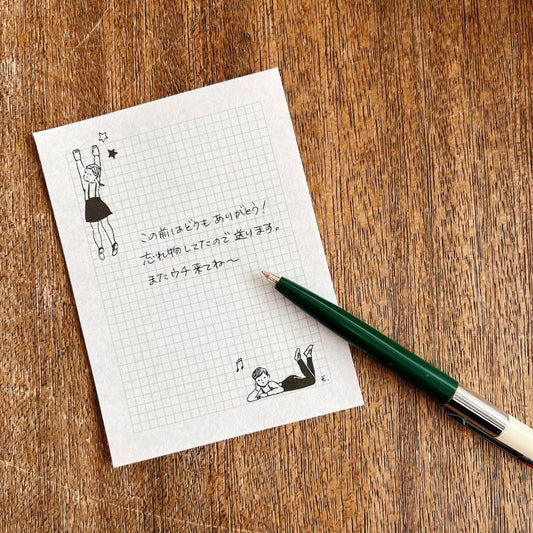 この前はどうもありがとう!
忘れ物してたので送ります。
またウチ来てね〜
E.